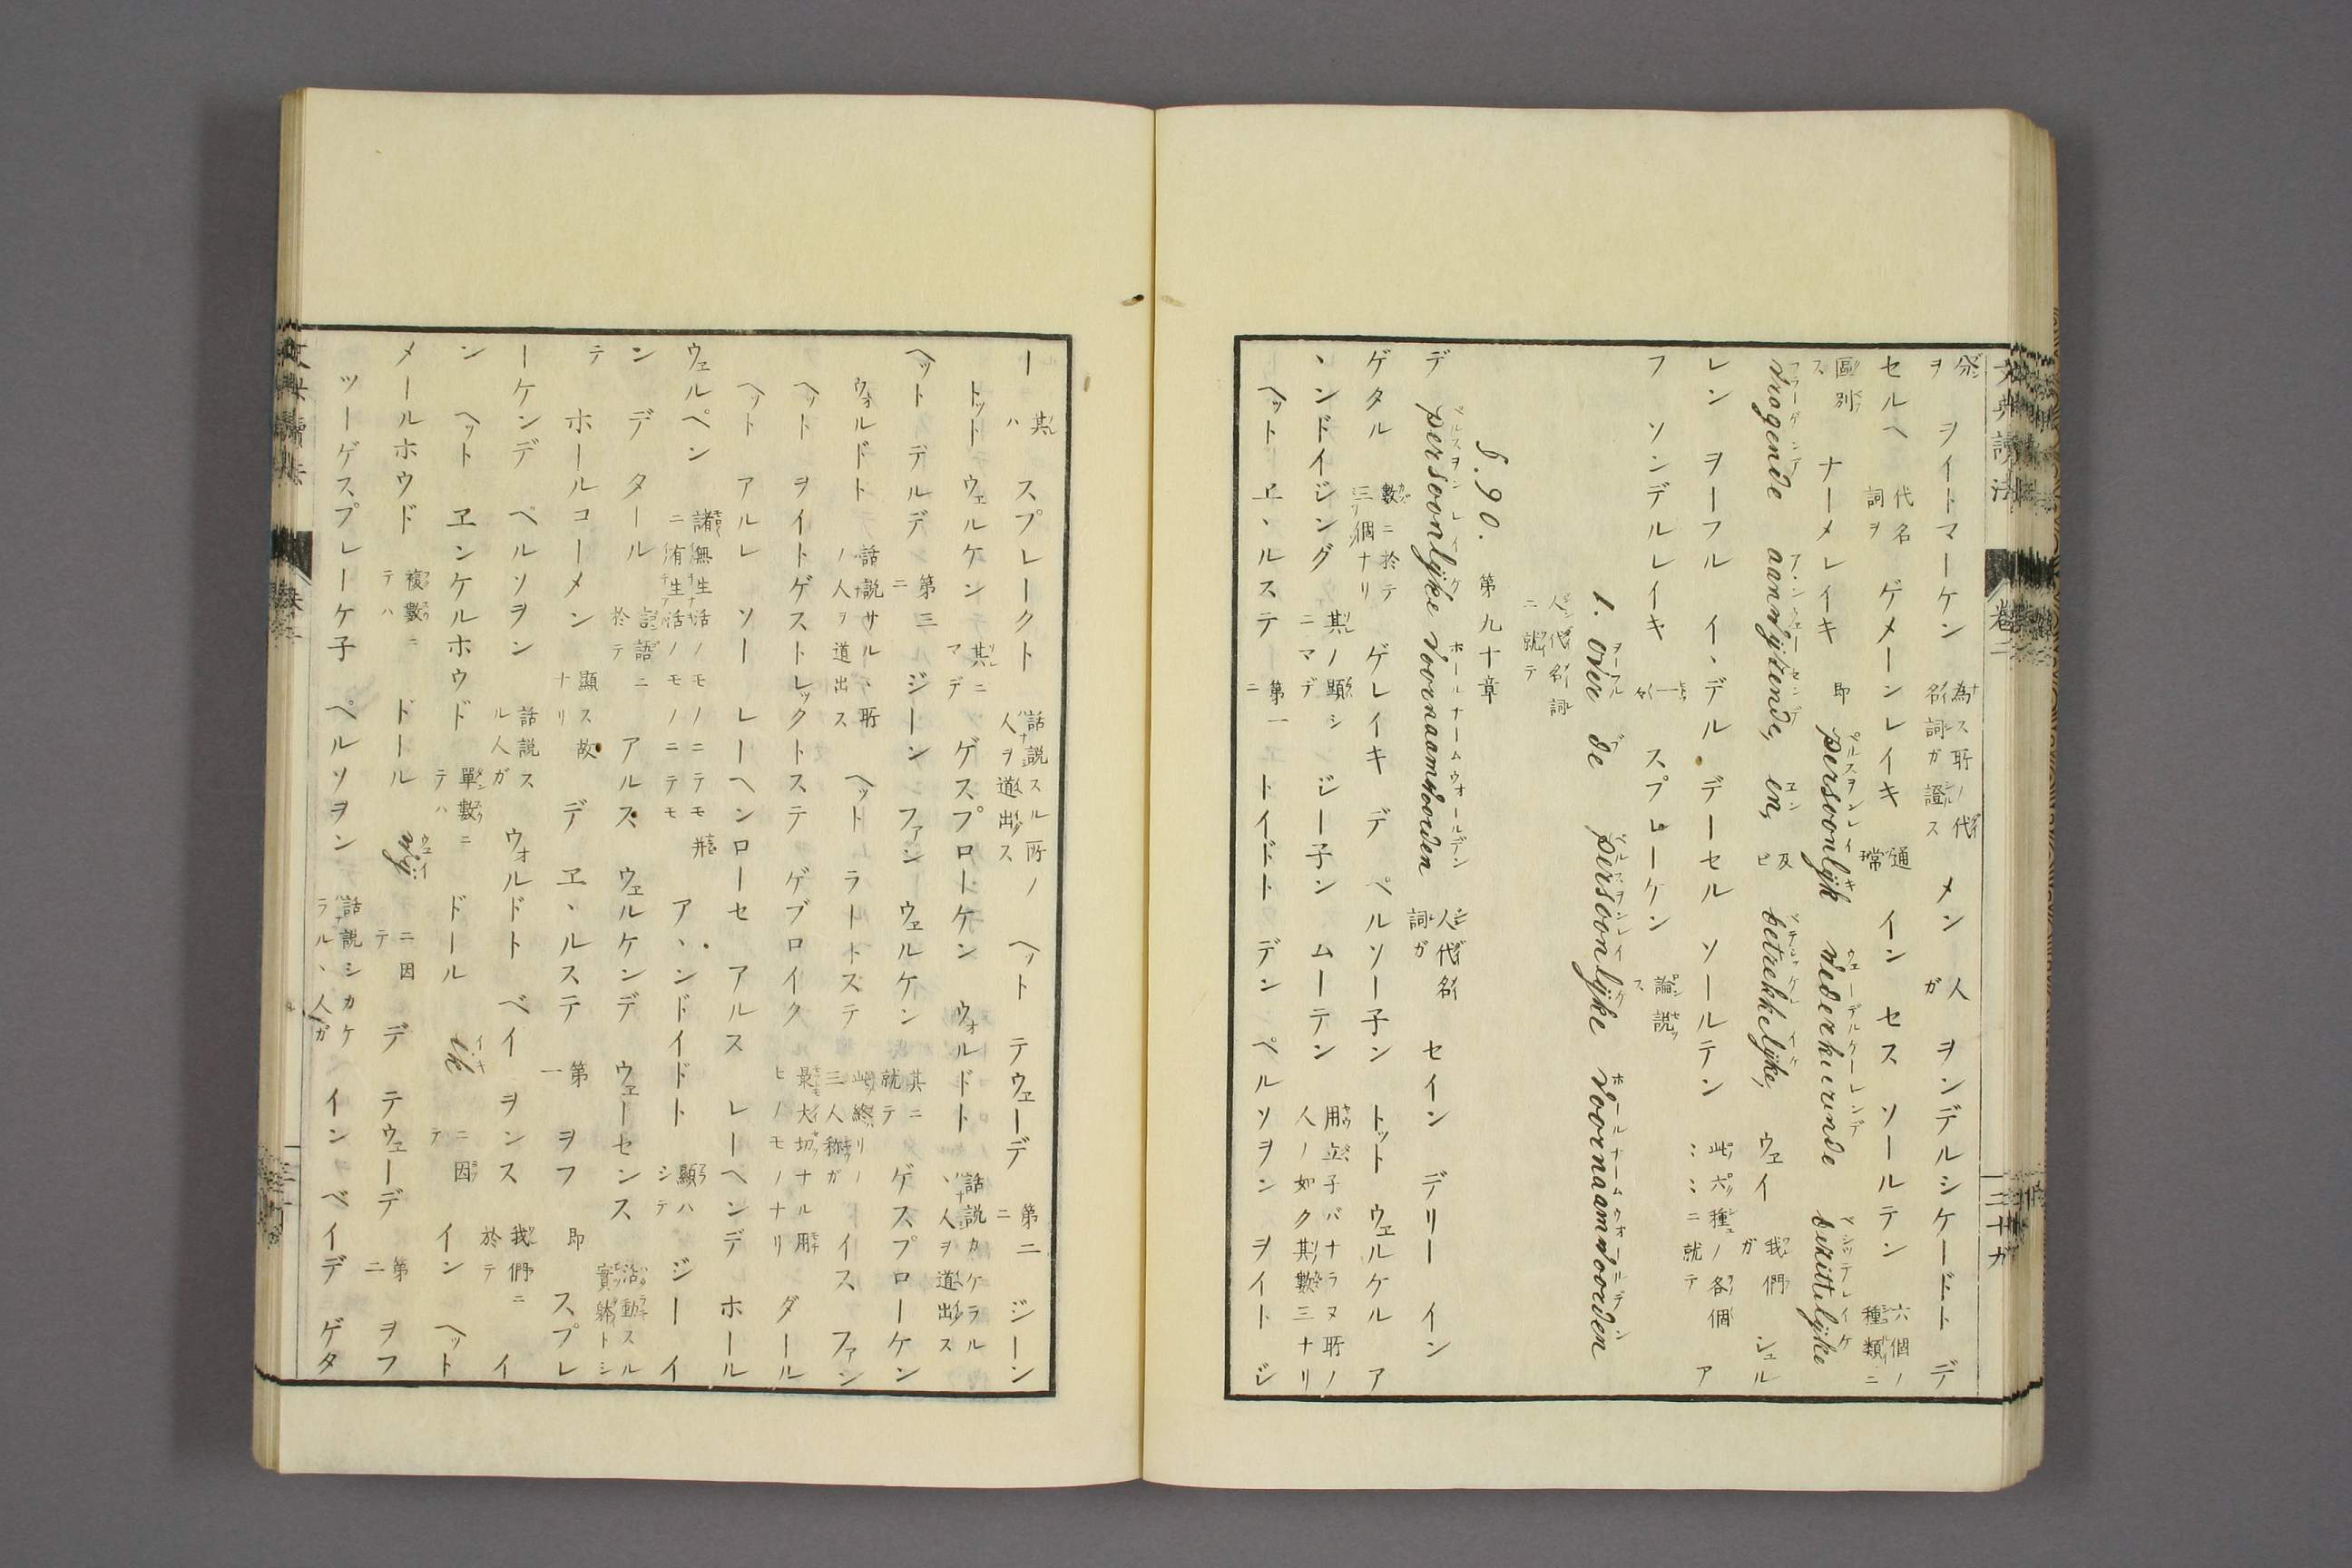 文典讀法 卷二 三十九
分ヲ ヲイトマーケン 為ス所ノ代名詞ガ證ス メン 人ガ ヲンデルシケードト デ
セルヘ 代名詞ヲ ゲメーンレイキ 通常 イン セス ソールテン 六個ノ種類ニ
區別ス ナーメレイキ 即 persoonlijk wederkeerende bezittelijke
vragende aanwijzende, en, 及ビ betrekkelijke, ウェイ 我們ガ シュル
レン ヲーフル イ、デル デーセル ソールテン 此六種ノ各個ニ就テ ア
フ ソンデルレイキ 一々 スプレーケン 論説ス
1. over de persoonlijke voornaamwoorden
人代名詞ニ就テ
§. 90. 第九十章
デ persoonlijke voornaamwoorden 人代名詞ガ セイン デリー イン
ゲタル 數ニ於テ三個ナリ ゲレイキ デ ペルソー子ン トット ウェルケル ア
、ンドイジング 其ノ顯シニマデ ジー子ン ムーテン 用立子バナラヌ所ノ人ノ如ク其數三ナリ
ヘット ヱ、ルステ 第一ニ トイドト デン ペルソヲン ヲイト ジ
ー 其ハ スプレークト 話説スル所ノ人ヲ道出ス ヘット テウェーデ 第二ニ ジーン
トット ウェルケン 其ニマデ ゲスプロトケン ウォルドト 話説カケラル、人ヲ道出ス
ヘット デルデ 第三ニ ジーン ファン ウェルケン 其ニ就テ ゲスプローケン
ウォルドト 話説サル、所ノ人ヲ道出ス ヘット ラートステ 此終リノ三人称ガ イス ファン
ヘット ヲイトゲストレックトステ ゲブロイク 最大切ナル用ヒノモノナリ ダール
ヘット アルレ ソー レーヘンローセ アルス レーヘンデ ホール
ウェルペン 諸無生活ノモノニテモ有生活ノモノニテモ并 ア、ンドイドト 顯ハシテ ジー イ
ン デ タール 言語ニ於テ アルス ウェルケンデ ウェーセンス 活動スル實躰トシ
テ ホールコーメン 顯ス故ナリ デ ヱ、ルステ 第一 ヲフ 即 スプレ
ーケンデ ペルソヲン 話説スル人ガ ウォルドト ベイ ヲンス 我們ニ於テ イ
ン ヘット ヱンケルホウド 單數ニテハ ドール ik ニ因テ イン ヘット
メールホウド 複數ニテハ ドール wij ニ因テ デ テウェーデ 第二 ヲフ
ツーゲスプレーケ子 ペルソヲン 話説シカケラル、人ガ イン ベイデ ゲタ